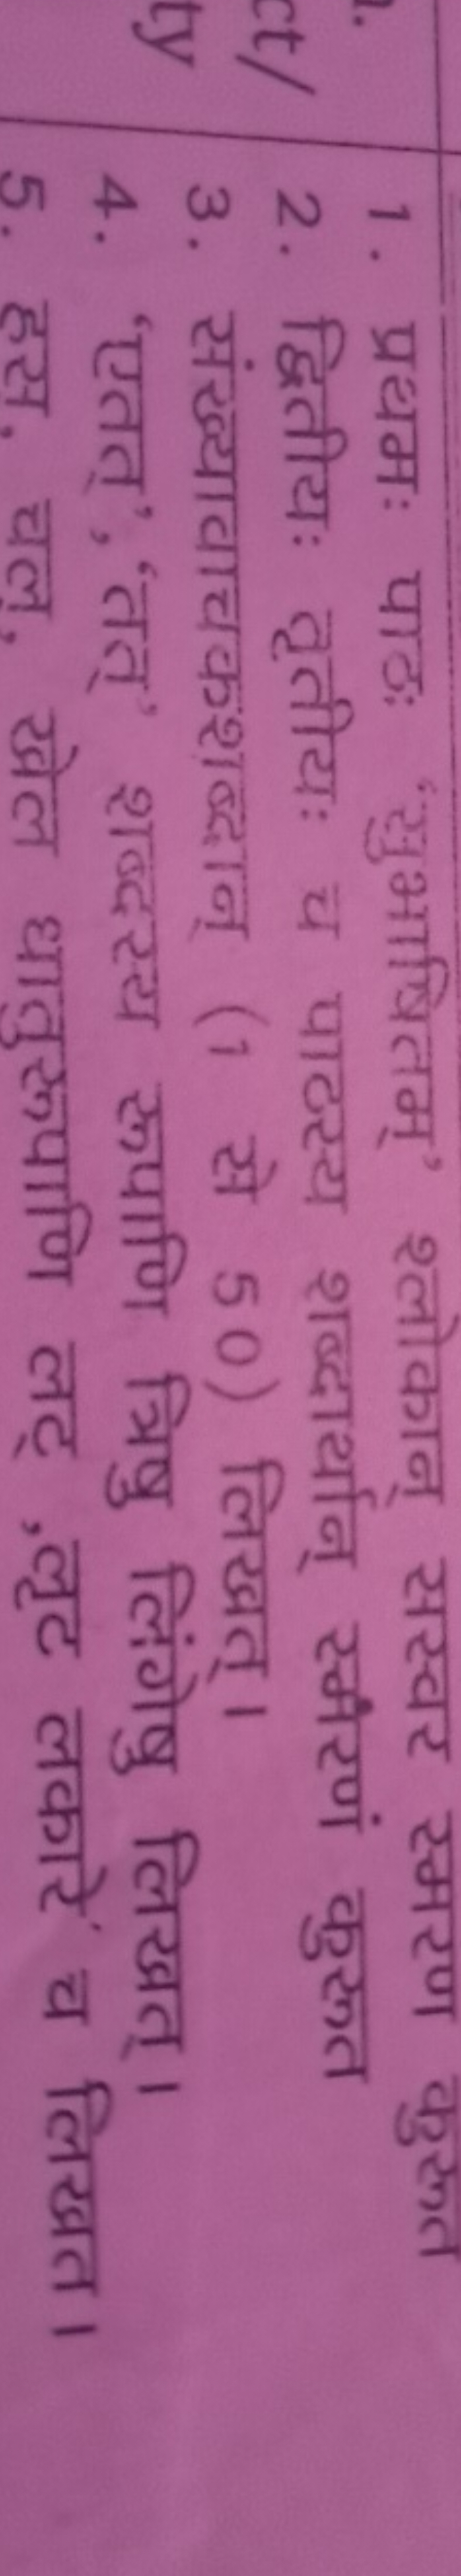 ct/
ty
1. प्रथमः पाठः 'सुभाषितम्' श्लोकान् सस्वर स्मरण कुरूत
2. द्वितीयः तृतीयः च पाठस्य शब्दार्थान् स्मरणं कुरूत
3. संख्यावाचकशब्दान् (1 से 50) लिखत्।
4. 'एतत्', 'तत्' शब्दस्य रूपाणि त्रिषु लिंगेषु लिखत्।
5. हस, चल्, खेल धातुरूपाणि लट् ,लृट लकारे च लिखत।